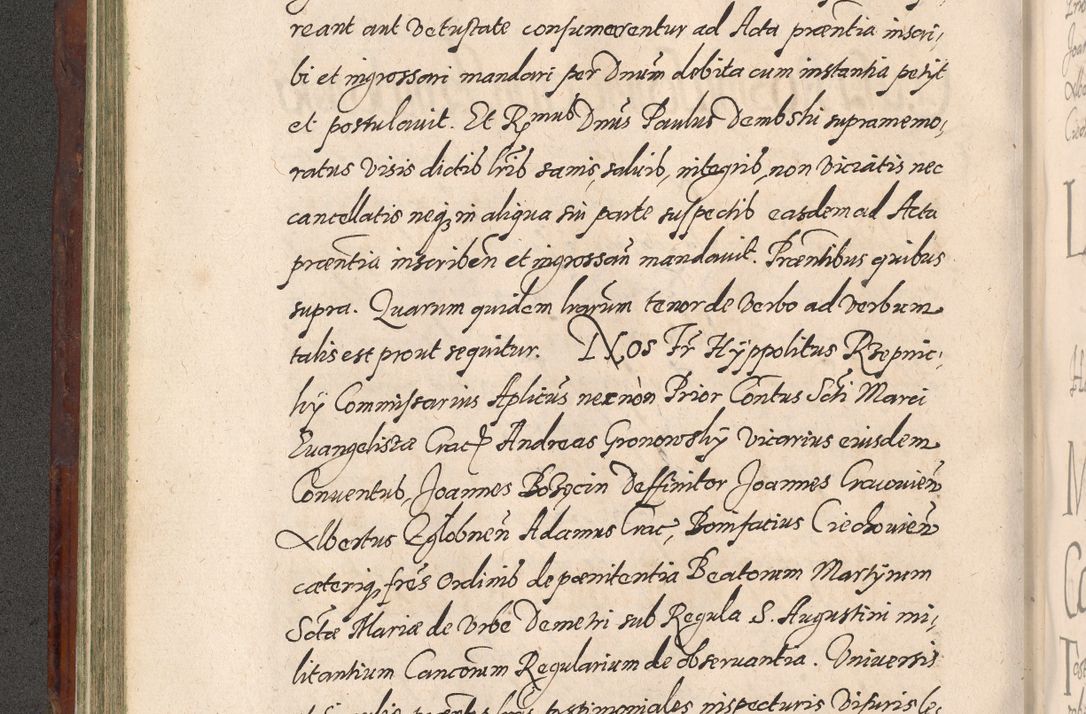 reant aut vetustate consumerentur ad Acta præntia inscri,
bi et ingrossari mandari per Dnūm debita cum instantia petijt
et postulavit. Et Rmus Dnūs Paulus Dembski supramemo,
ratus visis dictis lrīs sanis, salvis, integris, non viciatis nec
cancellatis neq; in aliqua sui parte suspectis easdem ad Acta
præntia inscriben̄ et ingrossan̄ mandavit. Præntibus quibus
supra. Quarum quidem lrarūm tenor de verbo ad verbum
talis est prout sequitur. NOS Fr̄ Hÿppolitus Rzepnic,
kÿ Commissarius Aplicūs necnòn Prior Contus Scti Marci
Evangelistæ Crac. Andreas Gronowskÿ vicarius eiusdem
Conventus, Joannes Bożęcin Deffinitor Joannes Cracovien̄
Albertus Zglobnen̄ Adamus Crac, Bonifacius Ciechovien̄
cæteriq; frēs Ordinis de pœnitentia Beatorum Martÿrum
Sctæ Mariæ de Urbe Demetri sub Regula S. Augustini mi,
litantium Cancorum Regularium de observantia. Universis
et singulis præntes lrās testimoniales inspecturis visuris le,